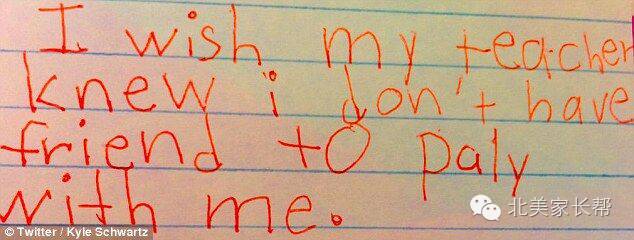 I wish my teacher
knew i don't have
friend to paly
with me.
北美家长帮
© Twitter / Kyle Schwartz